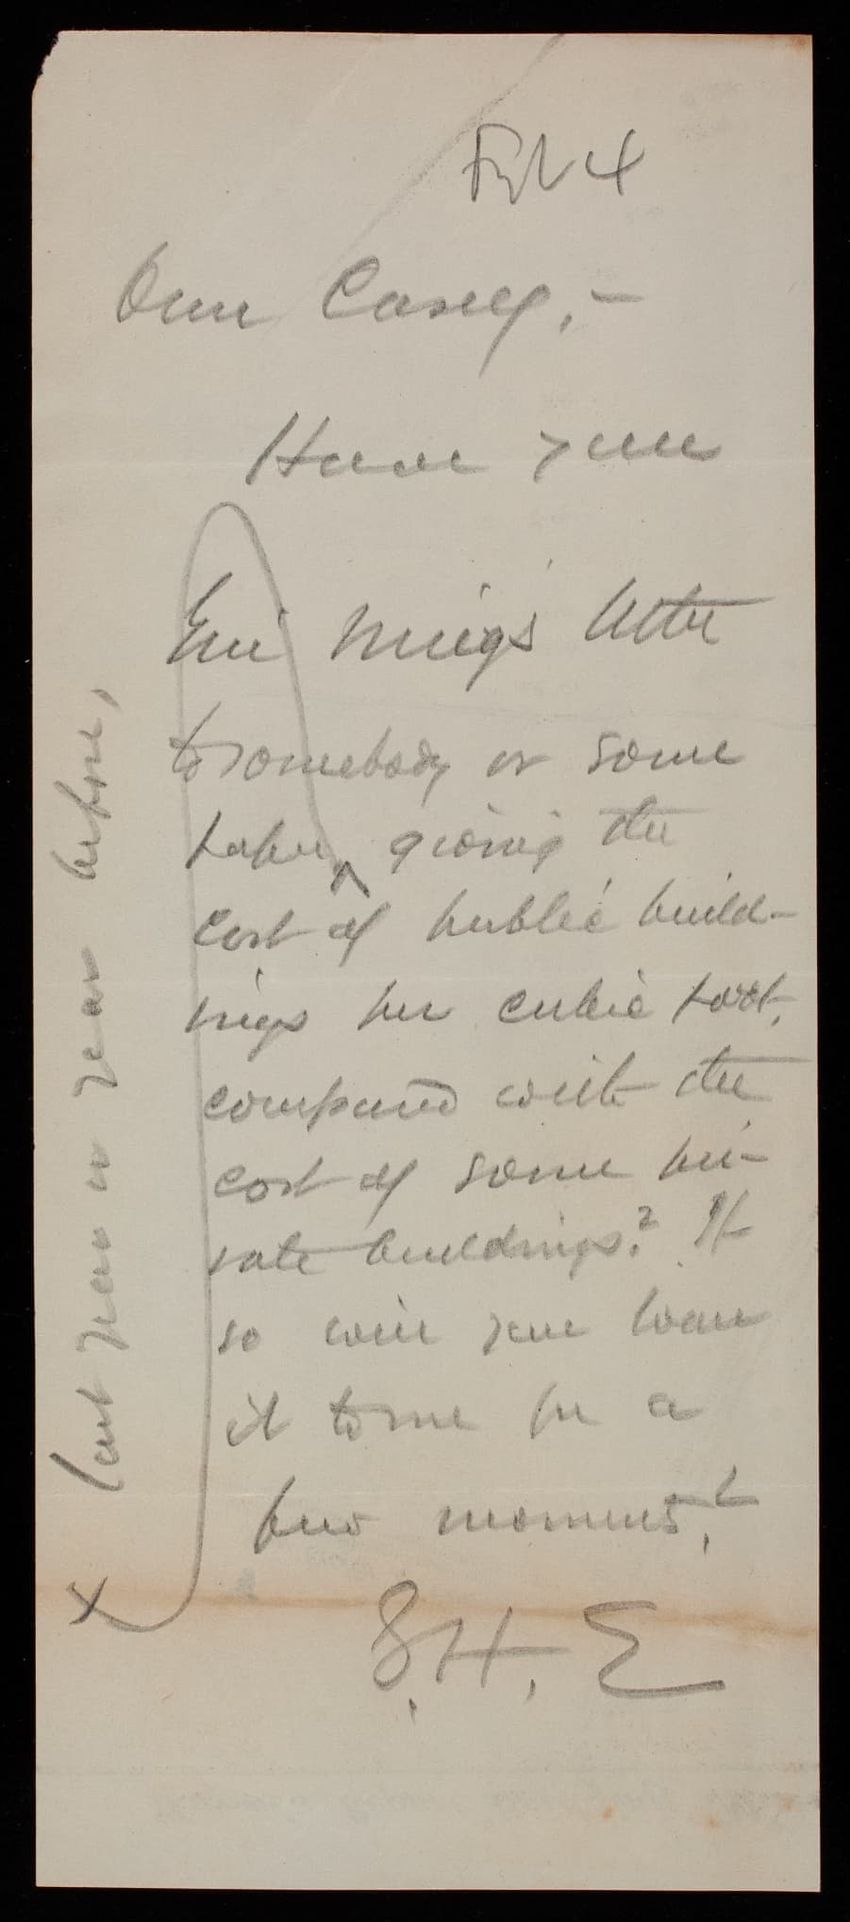 Feb 4
Dear Casey,—
Have you
Genl Meigs' letter
to somebody or some
paper ^ giving the
cost of public build-
ings per cubic foot,
compared with the
cost of some pri-
vate buildings? If
so will you loan
it to me for a
few moments?
S. H. E
x last year or year before,